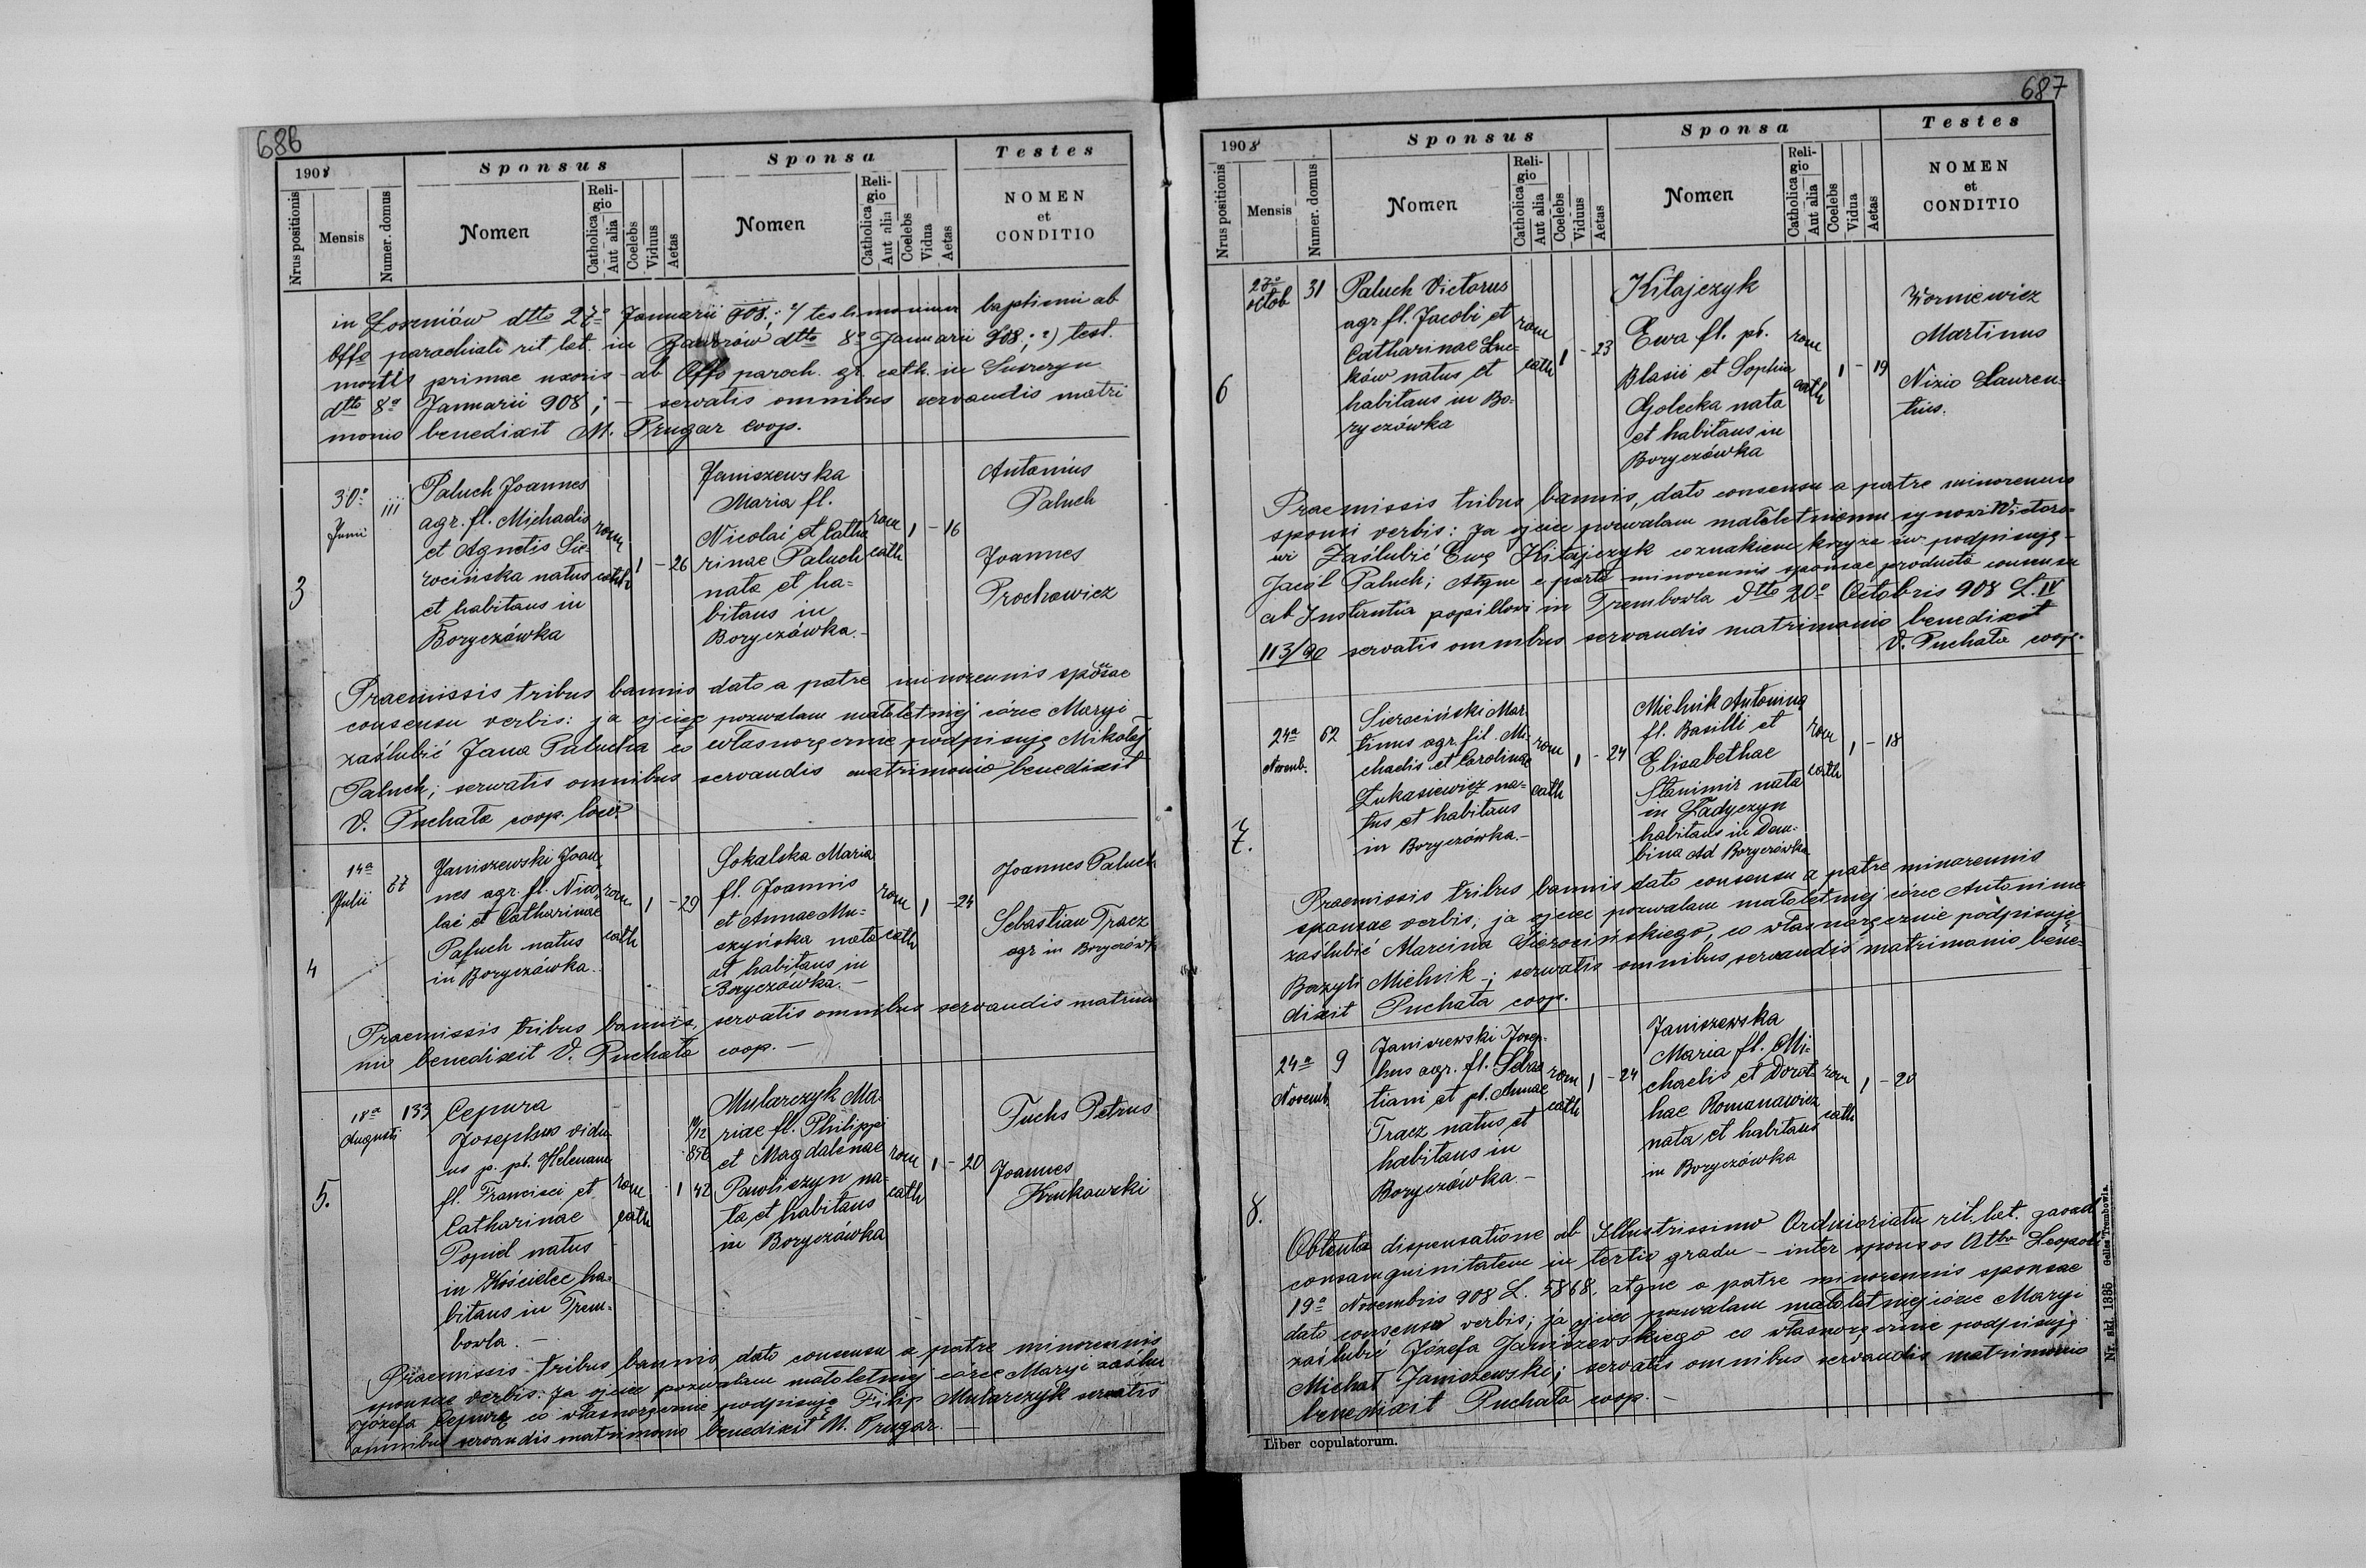 686
1908
Sponsus
Sponsa
Testes
Nrus positionis
Mensis
Numer. domus
Nomen
Religio
Catholica
Aut alia
Coelebs
Viduus
Aetas
Nomen
Religio
Catholica
Aut alia
Coelebs
Vidua
Aetas
NOMEN
et
CONDITIO
in Łoszniów dtto 27o Januarii 908; testimonium baptismi ab
Offo parochiali rit lat. in dtto 8o Januarii 908; 2) test.
mortis primae uxoris - ab Offo paroch. gr. cath. in
dtto 8o Januarii 908; - servatis omnibus servandis matri
monio benedixit M. Prugar coop.
3
30o
Junii
111
Paluch Joannes
agr. fl. Michaelis
et Agnetis Sie-
rocińska natus
et habitans in
Boryczówka
rom
cath
1 - 26
Janiszewska
Maria fl.
Nicolai et Catha
rinae Paluch
nata et ha=
bitans in
Boryczówka.-
rom
cath
1 - 16
Antonius
Paluch
Joannes
Prochowicz
Praemissis tribus bannis dato a patre minorennis sponsae
consensu verbis: ja ojciec pozwalam małoletniej córce Maryi
zaślubić Jana Palucha co własnoręcznie podpisuję Mikołaj
Paluch; servatis omnibus servandis matrimonio benedixit
V. Puchała coop. loci.
4
14a
Julii
67
Janiszewski Joan=
nes agr. fl. Nico=
lai et Catharinae
Paluch natus
in Boryczówka.
rom
cath
1 - 29
Sokalska Maria
fl. Joannis
et Annae Mu-
szyńska nata
et habitans in
Boryczówka.-
rom
cath
1 - 24
Joannes Paluch
Sebastian Tracz
agr in Boryczówk
Praemissis tribus bannis, servatis omnibus servandis matrimo
nio benedixit V. Puchała coop.-
5.
18a
Augusti
133
Cepura
Josephus vidu
us p. pt. Helenam
fl. Francisci et
Catharinae
Popiel natus
in Kościelec ha=
bitans in Trem-
bowla.-
rom
cath
1 42
Mularczyk Ma-
riae fl. Philippi
et Magdalenae
Pawliszyn na-
ta et habitans
in Boryczówka
rom
cath
1 - 20
Fuchs Petrus
Joannes
Krukowski
Praemissis tribus bannis, dato consensu a patre minorennis
sponsae verbis: Ja ojciec pozwalam małoletniej córce Maryi zaślu
Józefa Cepurę co własnoręcznie podpisuję Filip Mularczyk servatis
omnibus servandis matrimonio benedixit M. Prugar.
687
1908
Sponsus
Sponsa
Testes
Nrus positionis
Mensis
Numer. domus
Nomen
Religio
Catholica
Aut alia
Coelebs
Viduus
Aetas
Nomen
Religio
Catholica
Aut alia
Coelebs
Vidua
Aetas
NOMEN
et
CONDITIO
6
27o
octob
31
Paluch Victorus
agr fl. Jacobi et
Catharinae Luc-
ków natus et
habitans in Bo-
ryczówka
rom
cath
1 - 23
Kitajczyk
Ewa fl. pt.
Blasii et Sophia
Golecka nata
et habitans in
Boryczówka
rom
cath
1 - 19
Worniewicz
Martinus
Nizio Lauren-
tius.
Praemissis tribus bannis, dato consensu a patre minorennis
sponsi verbis: Ja ojciec pozwalam małoletniemu synowi Wictoro-
wi Zaślubić Ewę Kitajczyk co znakiem krzyża św. podpisuję -
Jacob Paluch; Atque e parte minorennis sponsae producto consensu
ab Instantia popillari in Trembowla dtto 20o Octobris 908 L. IV
113/90 servatis omnibus servandis matrimonio benedixit
V. Puchała coop.
7.
24a
Novemb.
62
Sierociński Mar
tinus agr. fil. Mi-
chaelis et Carolinae
Łukasiewicz na-
tus et habitans
in Boryczówka.-
rom
cath
1 - 24
Mielnik Antonina
fl. Basilli et
Elisabethae
Stanimir nata
in Ładyczyn
habitans in Dem-
bina ad Boryczówka
rom
cath
1 - 18
Praemissis tribus bannis dato consensu a patre minorennis
sponsae verbis; ja ojciec pozwalam małoletniej córce Antoninie
zaślubić Marcina Sierocińskiego, co własnoręcznie podpisuję
Bazyli Mielnik -; servatis omnibus servandis matrimonio bene-
dixit Puchała coop.
8.
24a
Novemb
9
Janiszewski Josep-
hus agr. fl. Sebas
tiani et pt. Annae
Tracz natus et
habitans in
Boryczówka.-
rom
cath
1 - 24
Janiszewska
Maria fl. Mi-
chaelis et Dorot-
hae Romanowicz
nata et habitans
in Boryczówka
rom
cath
1 - 20
Obtenta dispensatione ab Illustrissimo Ordinariatu rit. lat. quoad
consanguinitatem in tertio gradu - inter sponsos dtto Leopoli
19o Novembris 908 L. 5868, atque a patre minorennis sponsae
dato consensu verbis; ja ojciec pozwalam małoletniej córce Maryi
zaślubić Józefa Janiszewskiego co własnoręcznie podpisuję
Michał Janiszewski; servatis omnibus servandis matrimonio
benedixit Puchała coop.-
Liber copulatorum.
Nr. skl. 1385